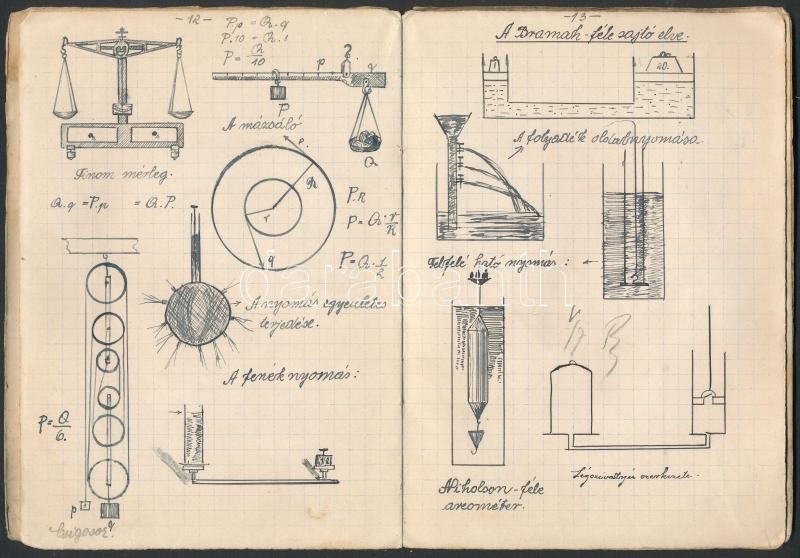 - 12 -
P.p = Q.q
P.10 = Q.1
P = Q/10
p
q
P
Q
A mázsáló
Finom mérleg.
Q.q = P.p = Q.P.
R
r
q
P.R
P = Q. r/R
A nyomás egyenletes
terjedése.
A fenéknyomás:
P = Q/6.
p
q
- 13 -
A Bramah-féle sajtó elve.
1
20.
A folyadék oldalnyomása.
Felfelé ható nyomás:
Niholson-féle
areométer.
Légszivattyús szerkezete.
darabanth